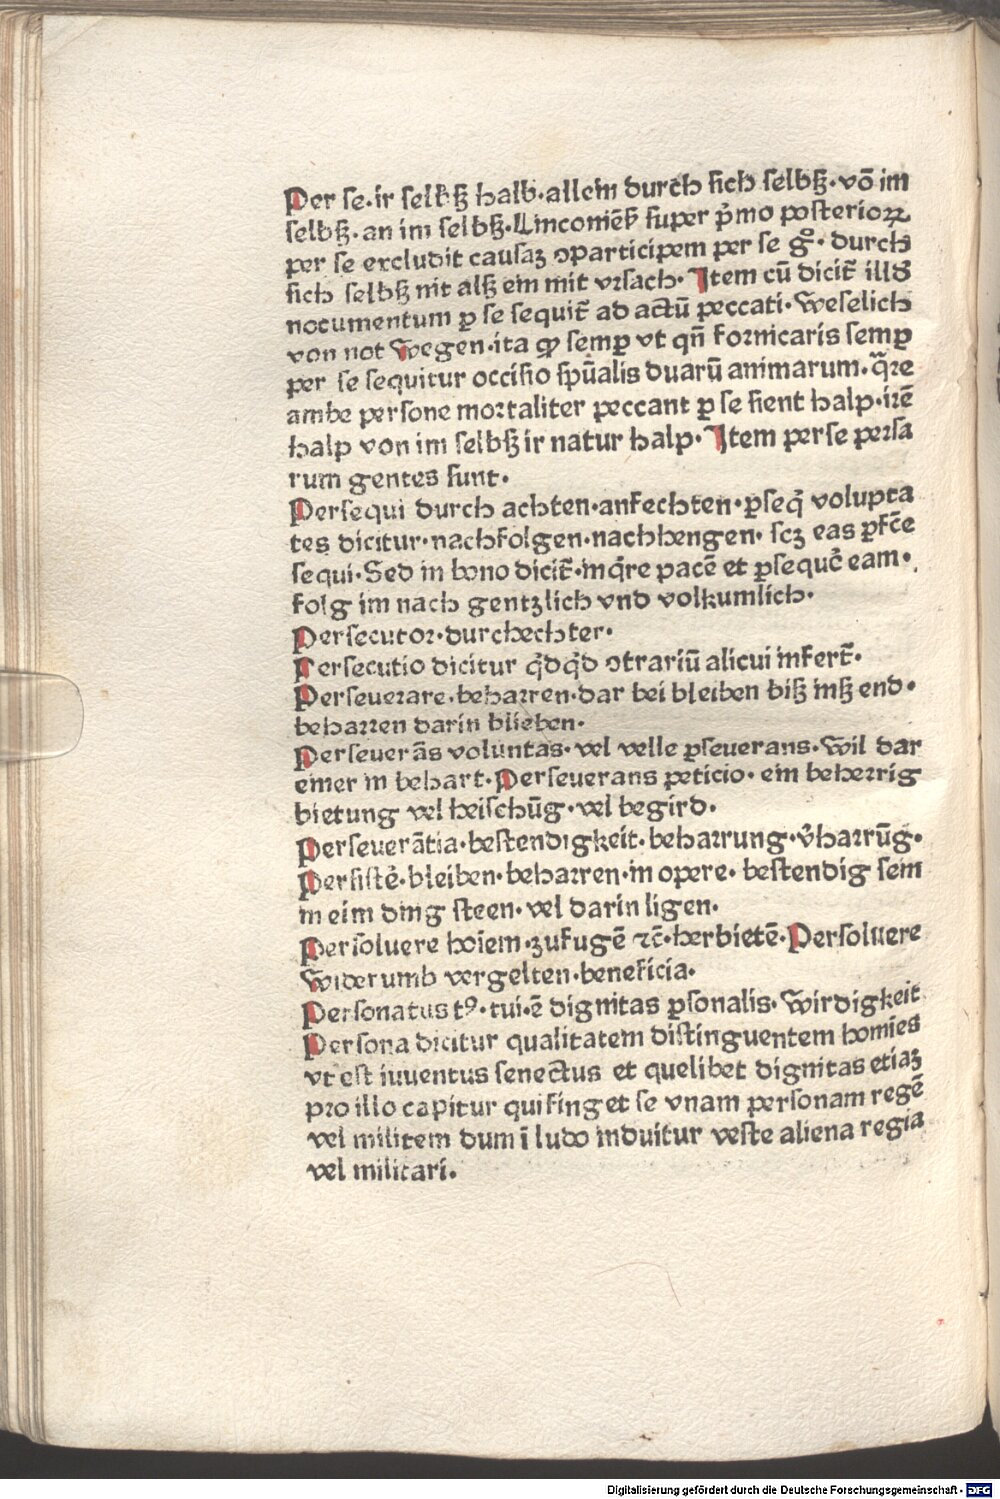 Per se·ir selbſʒ halb·allein durch ſich ſelbſʒ·vō im
ſelbſʒ·an im ſelbſʒ·Linconiēs ſuper p̄mo poſterioꝝ
per se excludit cauſaʒ ↄparticipem per se gͦ· durch
ſich ſelbſʒ nit alſʒ ein mit vrſach·Item cū dicit̄ illd̄
nocumentum ꝑ se sequit̄ ad actū peccati·Weſelich
von not wegen·ita ꝙ ſemꝑ vt qn̄ fornicaris ſemꝑ
per se sequitur occiſio ſpūalis duarū animarum·q̄re
ambe perſone mortaliter peccant ꝑ se fient halp·irē
halp von im ſelbſʒ ir natur halp·Item per se perſa
rum gentes ſunt·
Perſequi durch achten·anfechten·ꝑſeq̄ volupta
tes dicitur·nachfolgen·nachhengen·ſcʒ eas ꝑfc̄e
ſequi·Sed in bono dicit̄·inq̄re pacē et ꝑſequē eam·
folg im nach gentʒlich vnd volkumlich·
Perſecutor·durchechter·
Perſecutio dicitur q̄dq̄d ↄtrariū alicui infert̄·
Perſeuerare·beharren·dar bei bleiben biſʒ inſʒ end·
beharren darin blieben·
Perſeuerās voluntas·vel velle ꝑſeuerans·Wil dar
einer in behart·Perſeuerans peticio·ein beherrig
bietung vel heiſchūg·vel begird·
Perſeuerātia·beſtendigkeit·beharrung·v̄harrūg·
Perſiſtē·bleiben·beharren·in opere·beſtendig ſein
in eim ding ſteen·vel darin ligen·
Perſoluere hoiem·zufugē ⁊c̄·herbietē·Perſoluere
Widerumb vergelten·beneficia·
Perſonatus tꝰ·tui·ē dignitas ꝑſonalis·Wirdigkeit
Perſona dicitur qualitatem diſtinguentem homies
vt eſt iuuentus ſenectus et quelibet dignitas etiaʒ
pro illo capitur qui finget ſe vnam perſonam regē
vel militem dum ī ludo induitur veſte aliena regia
vel militari·
Digitalisierung gefördert durch die Deutsche Forschungsgemeinschaft - DFG